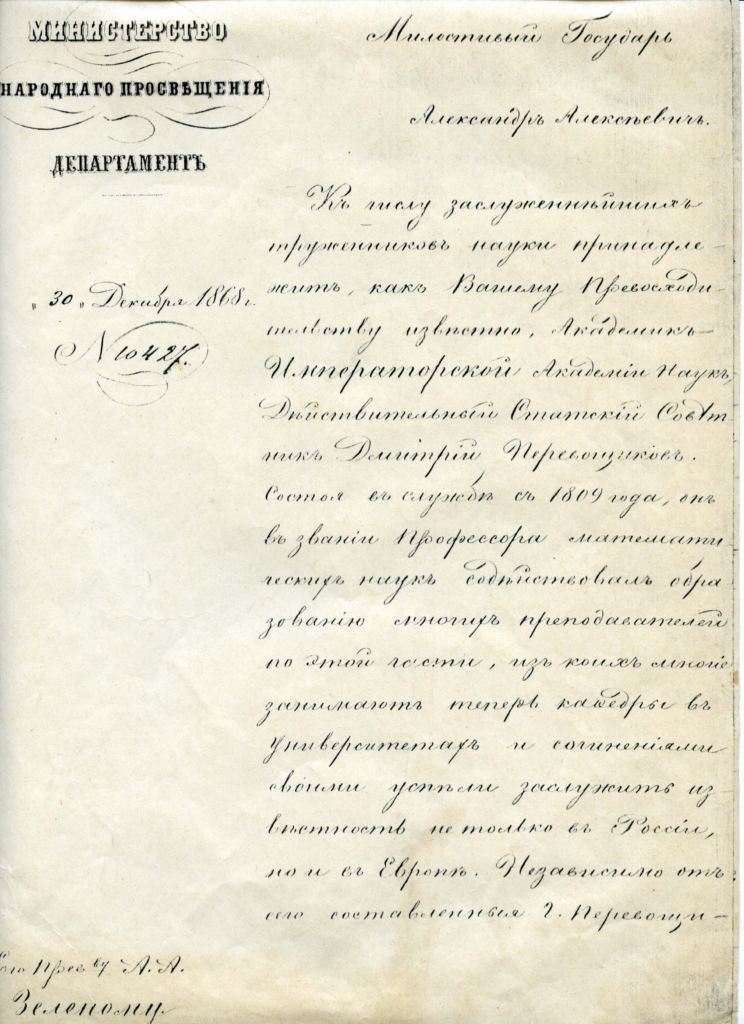 МИНИСТЕРСТВО
НАРОДНАГО ПРОСВѢЩЕНІЯ
ДЕПАРТАМЕНТЪ
„30„ Декабря 1868 г.
№ 10427.
Милостивый Государь
Александръ Алексѣевичъ.
Къ числу заслуженнѣйшихъ
труженниковъ науки принадле-
житъ, какъ Вашему Превосходи-
тельству извѣстно, Академикъ
Императорской Академіи Наукъ,
Дѣйствительный Статскій Совѣт-
никъ Дмитрій Перевощиковъ.
Состоя въ службѣ съ 1809 года, онъ
въ званіи Профессора математи-
ческихъ наукъ содѣйствовалъ обра-
зованію многихъ преподавателей
по этой части, изъ коихъ многіе
занимаютъ теперь каѳедры въ
университетахъ и сочиненіями
своими успѣли заслужить из-
вѣстность не только въ Россіи,
но и въ Европѣ. Независимо отъ
сего составленныя Г. Перевощи-
Его Прев ву А. А.
Зеленому.